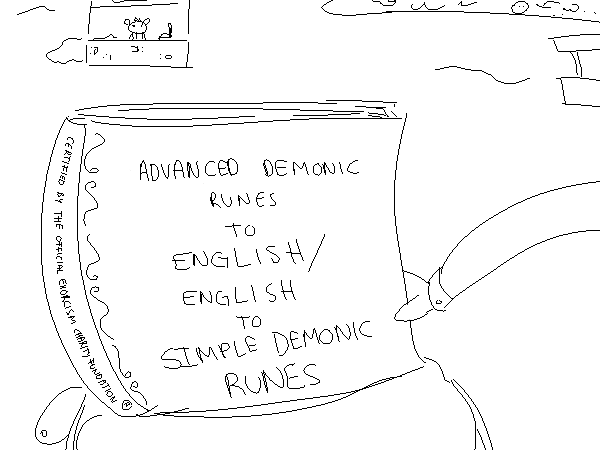 CERTIFIED BY THE OFFICIAL EXORCISM CHARITY FUNDATION ®
ADVANCED DEMONIC
RUNES
TO
ENGLISH/
ENGLISH
TO
SIMPLE DEMONIC
RUNES